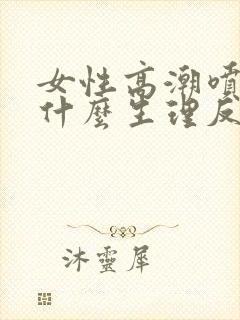 女性高潮噴
什麼生理反
沐靈犀